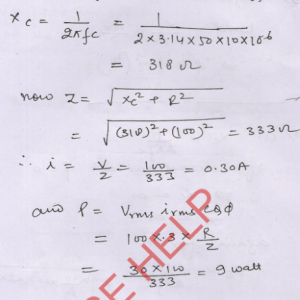 Xc = 1/2πfc = 1/2×3.14×50×10×10⁻⁶
= 318 Ω
now Z = √Xc² + R²
= √(318)² + (100)² = 333 Ω
∴ i = V/Z = 100/333 = 0.30A
and P = Vrms irms cosϕ
= 100 × .3 × R/Z
= 30×100/333 = 9 watt
RE HELP